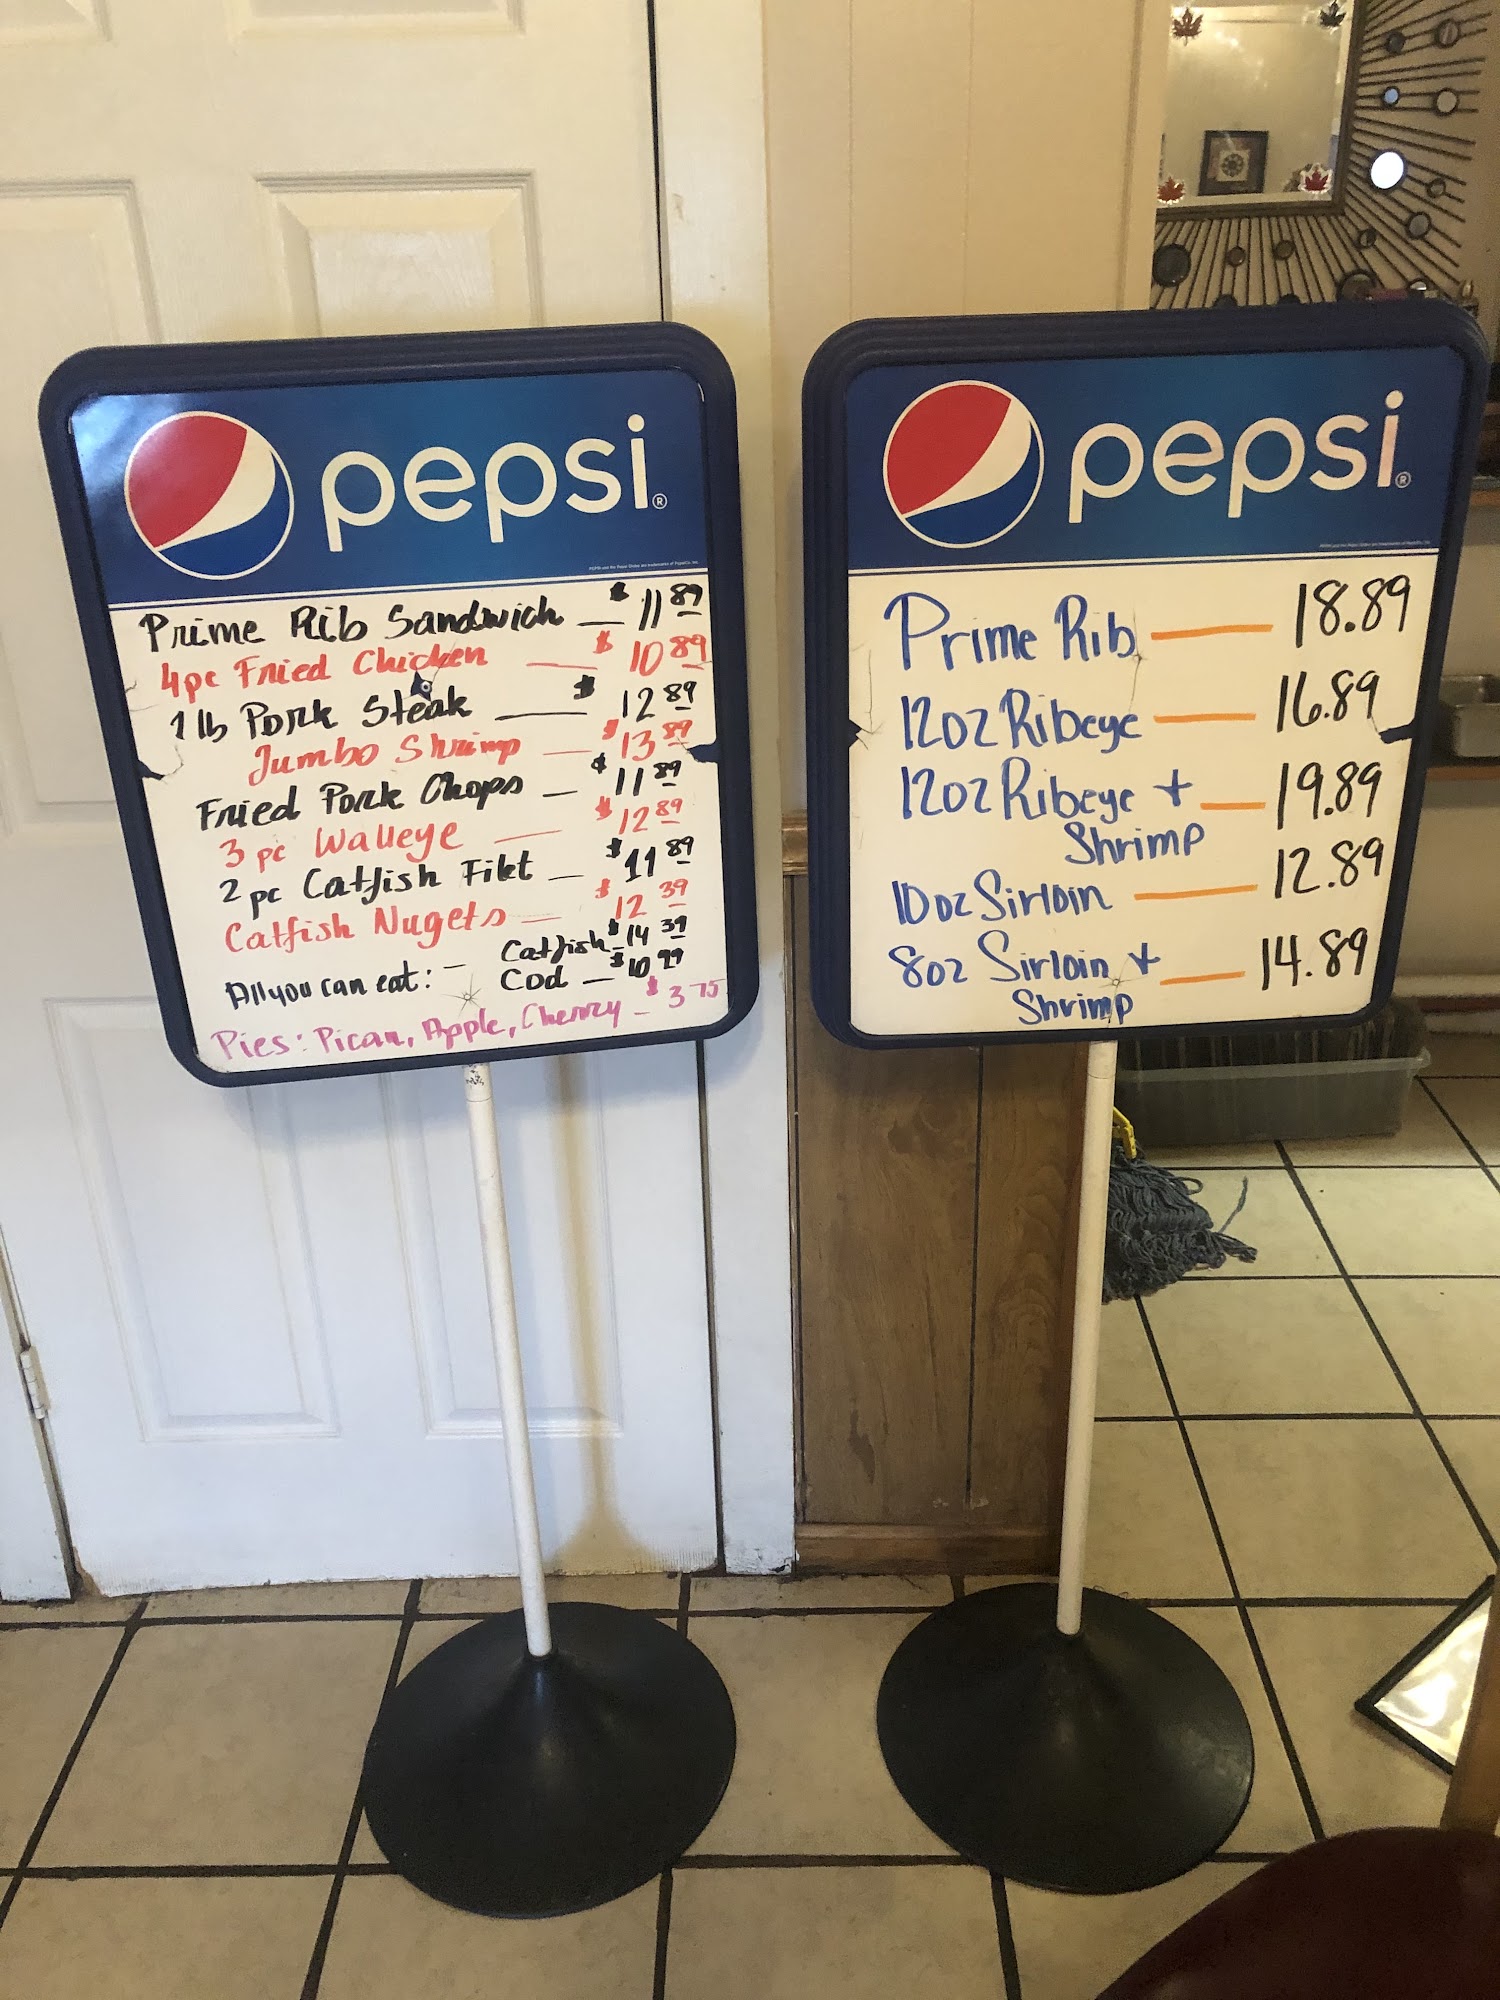 pepsi®
Prime Rib Sandwich — $ 11 89
4pc Fried Chicken — $ 10 89
1 lb Pork Steak — $ 12 89
Jumbo Shrimp — $ 13 89
Fried Pork Chops — $ 11 89
3 pc Walleye — $ 12 89
2 pc Catfish Filet — $ 11 89
Catfish Nugets — $ 12 39
All you can eat: – Catfish – $ 14 39
Cod — $ 10 99
Pies: Pican, Apple, Cherry – $ 3 75
pepsi®
Prime Rib — 18.89
12oz Ribeye — 16.89
12oz Ribeye + — 19.89
Shrimp
10oz Sirloin — 12.89
8oz Sirloin + — 14.89
Shrimp